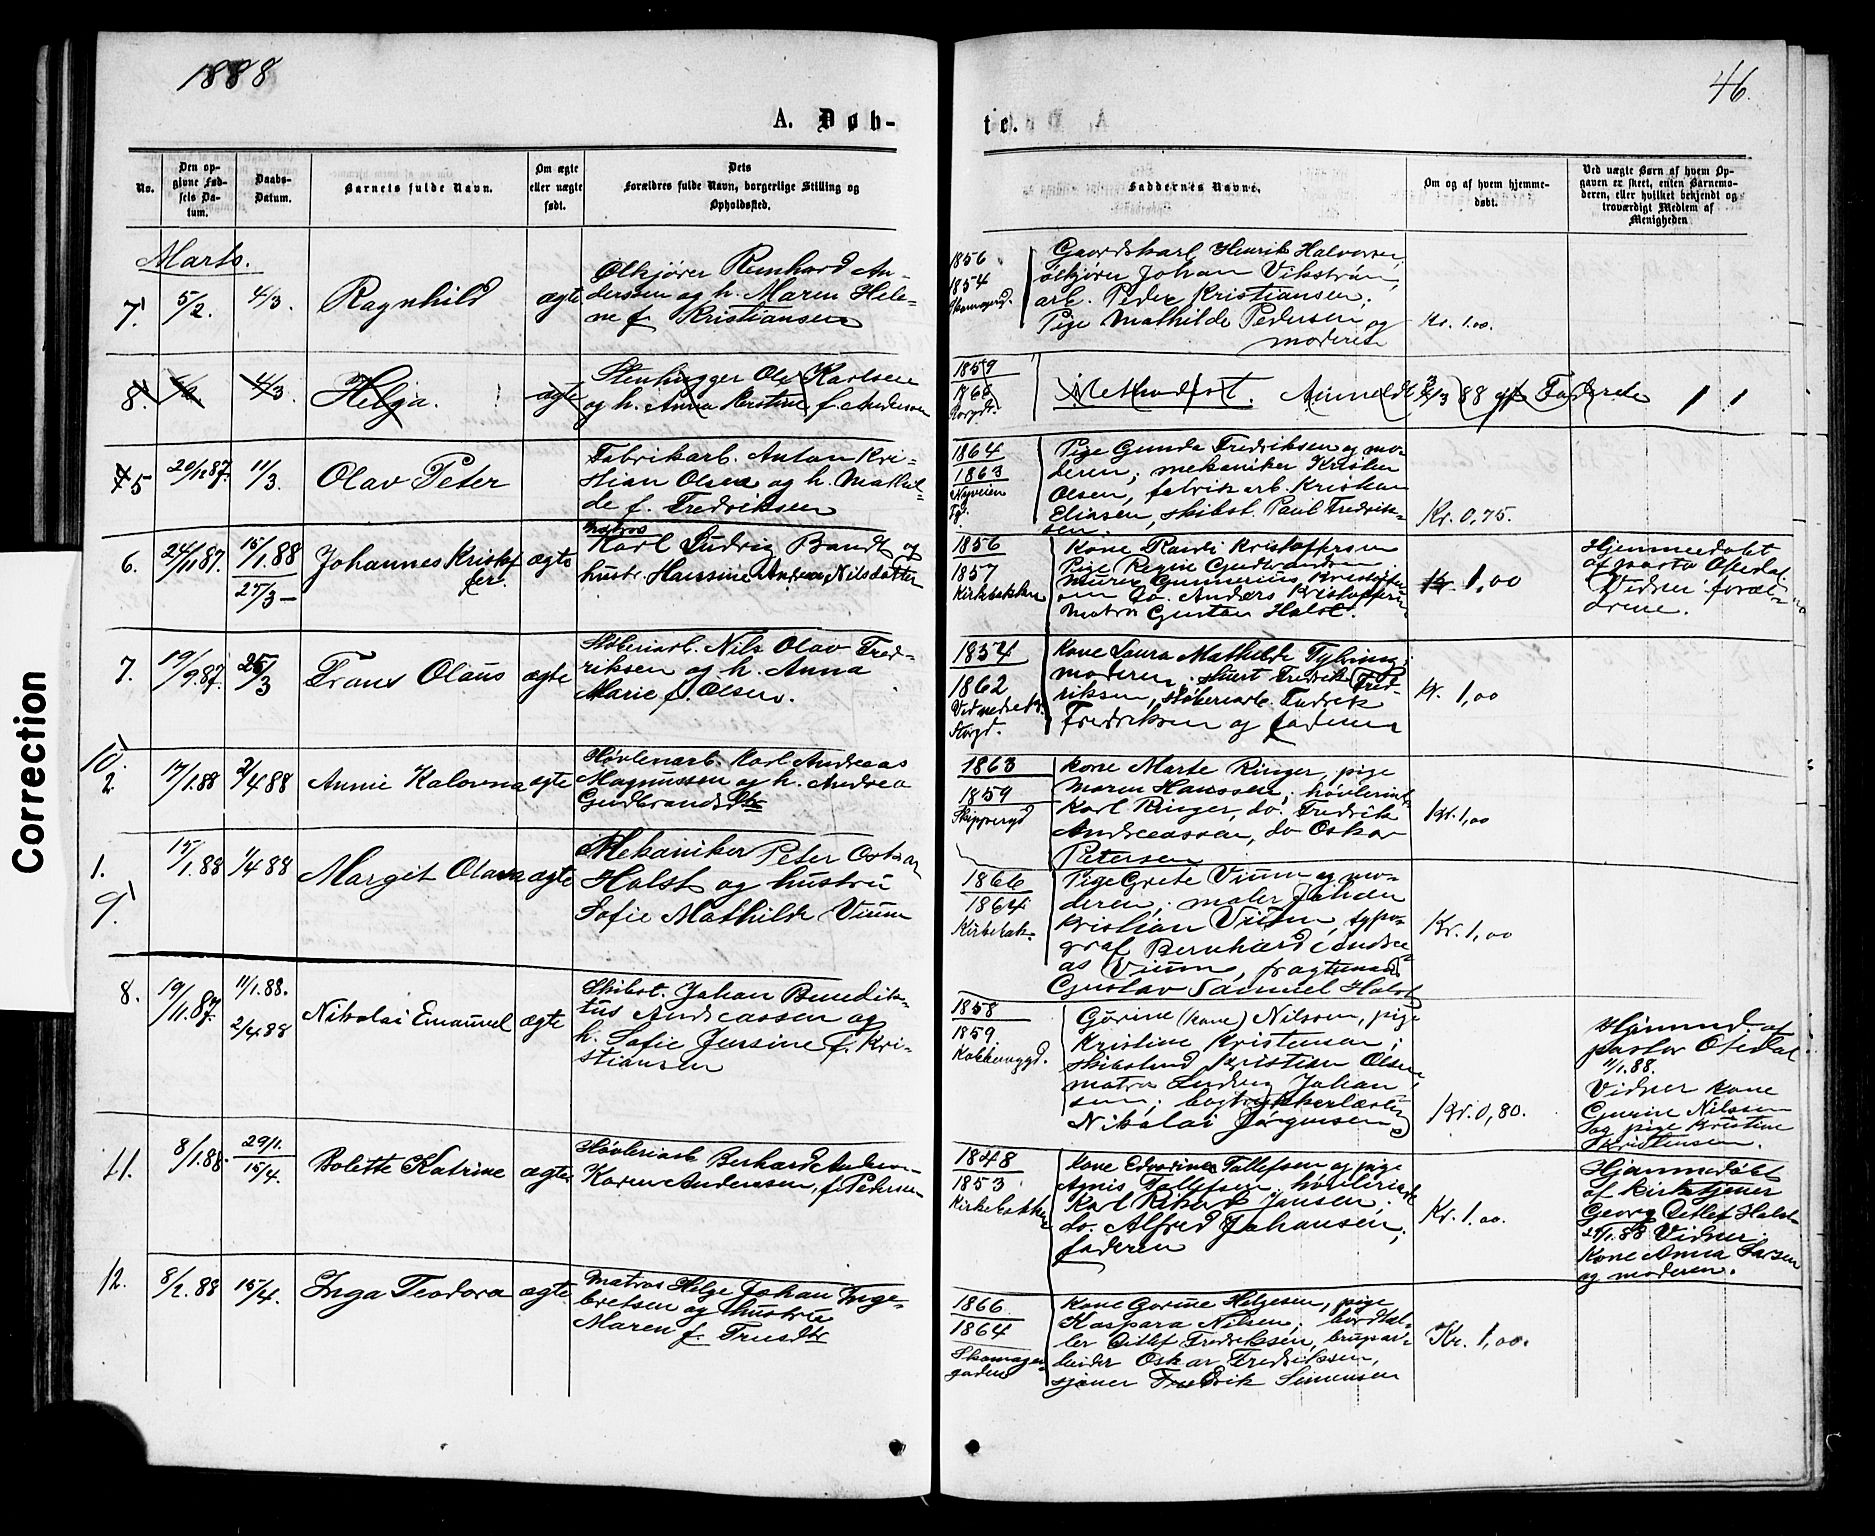 1888
46.
A. Døb-
te.
No.
Den op-
givne Fød-
sels Da-
tum.
Daabs-
Datum.
Barnets fulde Navn.
Om ægte
eller uægte
født.
Dets
Forældres fulde Navn, borgerlige Stilling og
Opholdssted.
Faddernes Navne.
Om og af hvem hjemme-
døbt.
Ved uægte Børn af hvem Op-
gaven er skeet, enten Barnemo-
deren, eller hvilket bekjendt og
troværdigt Medlem af
Menigheden
Marts.
7. 5/2. 4/3. Ragnhild ægte
Ølkjører Reinhard An-
derssen og h. Maren Hele-
ne f. Kristiansen
1856
1854
Gaardskarl Henrik Halvorsen,
ølkjører Johan Vikstrøm,
arb. Peder Kristiansen;
Pige Mathilde Pedersen og
moderen
Kr. 1.00.
8. 4/3 Helga. ægte
Stenhugger Ole Karlsen
og h. Anna Kristine f. Andersen
1859
1860
Methodist. Anmeldt 3/3 88 af Faderen
5 20/12 87. 11/3. Olav Peter
Fabrikarb. Anton Kri-
stian Olsen og h. Mathil-
de f. Fredriksen
1864
1863
Nyveien
Pige Gunda Fredriksen og mo-
deren; mekaniker Kristen
Olsen, fabrikarb. Kristian
Eliasen, skibst. Paul Fredrik-
sen
Kr. 0,75.
6. 24/11 87. 15/1 88 27/3 Johannes Kristof
fer. ægte
Matros
Karl Ludvig Bandt og
hustr. Hansine Andrea Nilsdatter
1856
1857
Kirkebakken
Kone Randi Kristoffersen
Pige Regine Gudbrandsen
Matros Gustav Halst.
Kr. 1,00
Hjemmedøbt
af pastor Oftedal.
Vidner foræl-
drene.
7. 19/9 87. 25/3 Frans Olaus ægte
Støberiarb. Nils Olav Fred-
riksen og h. Anna
Marie f. Olsen.
1854
1862
Kone Laura Mathilde Tybring;
moderen; skust. Fredrik Fred-
riksen, støberiarb. Fredrik
Fredriksen og faderen
Kr. 1,00
10.
2. 17/1 88 2/4 88 Annie Kalovna ægte
Høvleriarb. Karl Andreas
Magnussen og h. Andrea
Gudbrandsdtr
1863
1859
Skippergd
Kone Marte Ringer, pige
Maren Hanssen; høvleriarb.
Karl Ringer, do. Fredrik
Andreassen, do Oskar
Petersen
Kr. 1,00
1. 15/1 88 1/4 88 Margit Olava ægte
9.
Mekaniker Peter Oskar
Holst og hustru
Sofie Mathilde Vium
1866
1864
Kirkebak.
Pige Grete Vium og mo-
deren; maler Johan
Kristian Vium, typo-
graf Bernhard Andre-
as Vium, fragtemand
Gustav Samuel Holst
Kr. 1,00
8. 19/11 87. 11/1 88. 2/4 88 Nikolai Emanuel ægte
Skibst. Johan Benedik-
tus Andreassen og
h. Sofie Jensine f. Kri-
stiansen
1858
1859
Gurine (kone) Nilssen, pige
Kristine Kristensen;
skibstmd Kristian Olsen,
matros Ludvig Johan
sen; bogtrykkerlærling
Nikolai Jørgensen
Kr. 0,80.
Hjemmd. af
pastor Oftedal
11/1 88.
Vidner Kone
Gurine Nilssen
og pige Kristine
Kristensen.
11. 8/1 88. 29/1. 15/4. Bolette Katrine ægte
Høvleriarb Berhard Anders-
Karen Andersen, f. Pedersen
1848
1853
Kirkebakken
Kone Edvardine Tollefsen og pige
Agnis Tollefsen, høvleriarb
Karl Rikard Jansen;
do. Alfred Johansen;
faderen
Kr. 1.00.
Hjemmedøbt
af kirketjener
Georg Ditlef Holst
29/1.88 Vidner,
Kone Anna Larsen
og moderen.
12. 8/2. 88 15/4. Inga Teodora ægte
Matros Helge Johan Inge-
bretsen og hustru
Maren f. Truedtr
1866
1864
Skomager-
gaden
Kone Gorine Helgesen, pige
Kaspara Nilsen;
Ditlef Fredriksen, brugsar-
beider Oskar Fredriksen,
sjøuer Fredrik Simensen
Kr. 1,00.
Correction